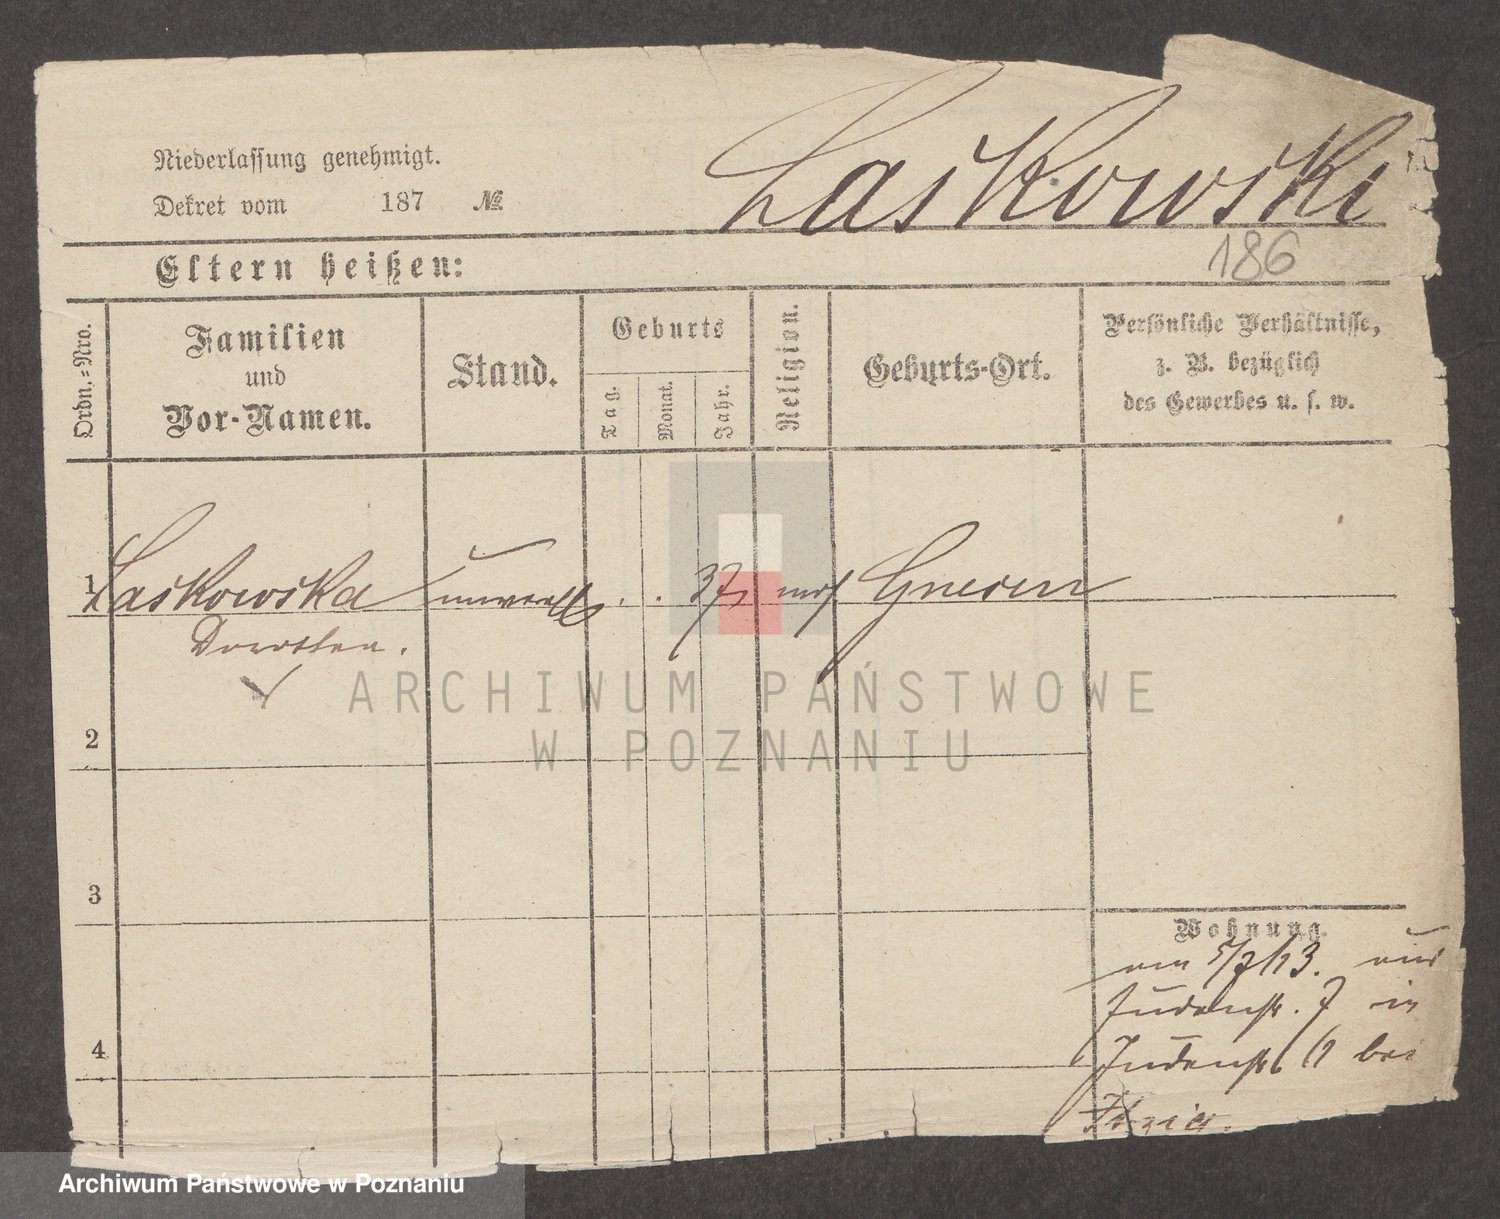 Niederlassung genehmigt.
Dekret vom 187 №
Laskowski
186
Eltern heißen:
Ordn.=Nro.
Familien
und
Vor-Namen.
Stand.
Geburts
Tag.
Monat.
Jahr.
Religion.
Geburts-Ort.
Persönliche Verhältnisse,
z. B. bezüglich
des Gewerbes u. s. w.
1 Laskowska 37 Gnesen
Dorothea.
2
3
4
Wohnung.
aus
Judenstr. 7 in
Judenstr. bei
ARCHIWUM PAŃSTWOWE
W POZNANIU
Archiwum Państwowe w Poznaniu